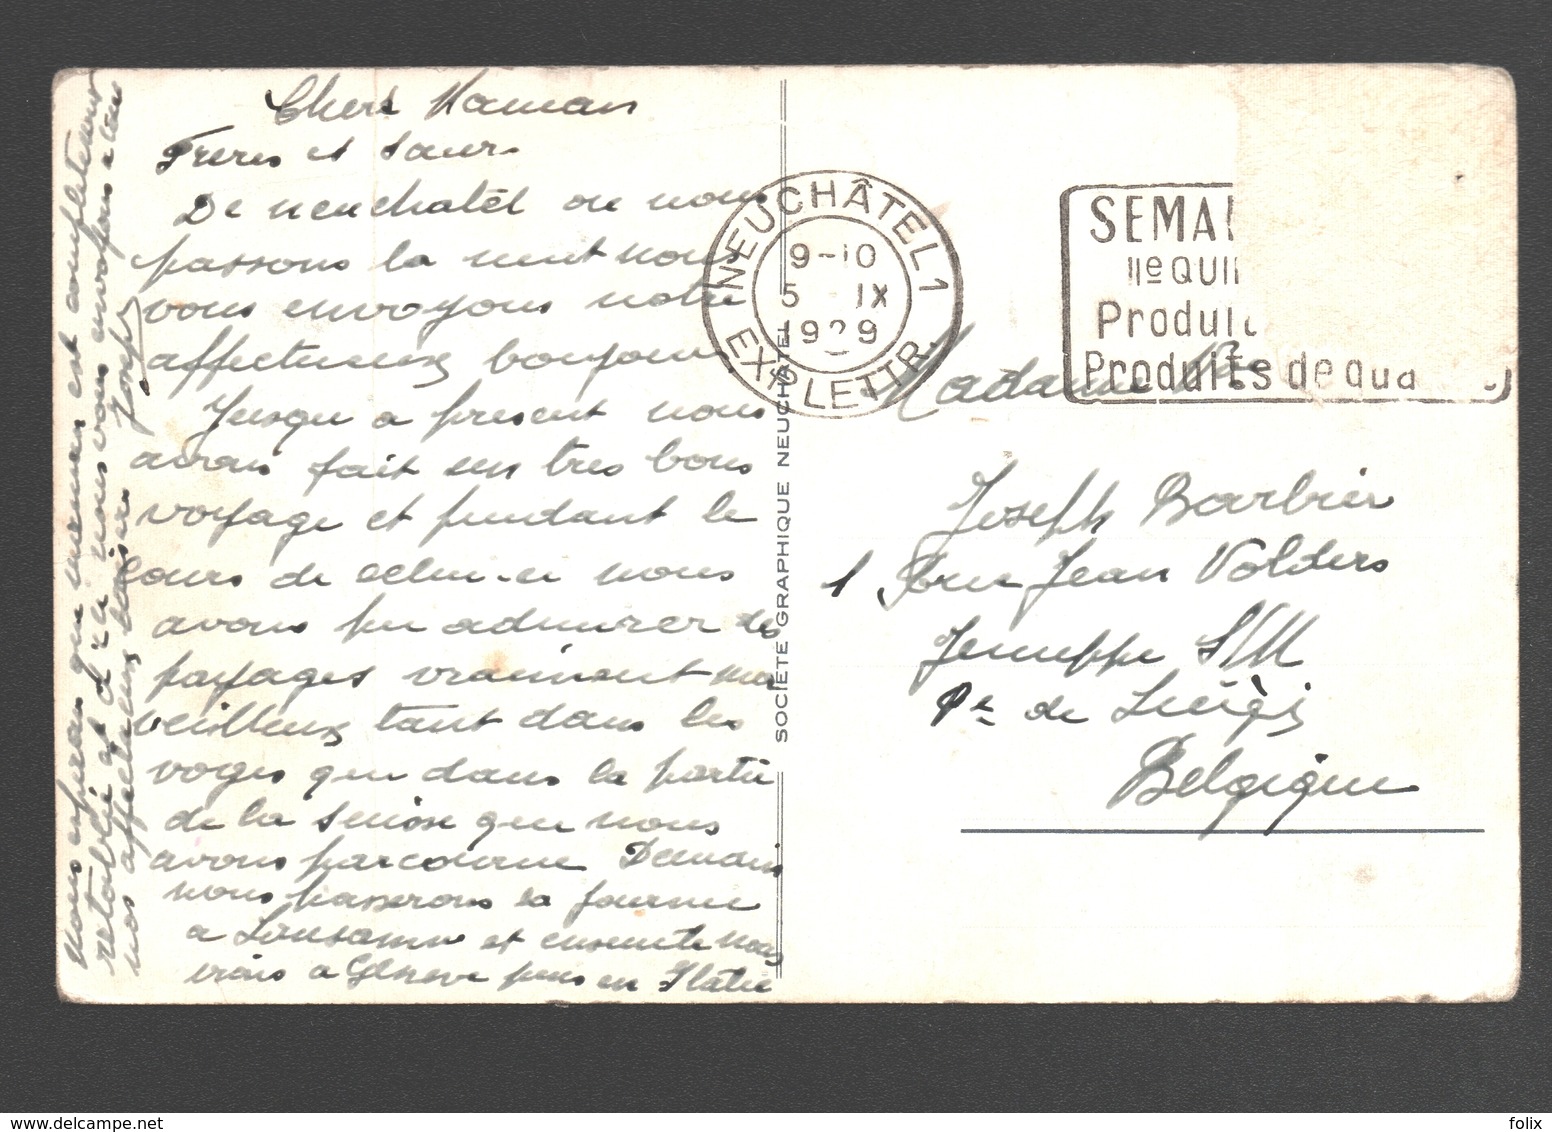 Chers Maman
Freres et Sœur
De neuchatel ou nous
passons la nuit nous
vous envoyons notre
affectueux bonjour
Jusqu a present nous
avons fait un tres bons
voyage et pendant le
cours de celui-ci nous
avons pu admirer des
paysages vraiment mer
veilleux tant dans les
voges que dans la partie
de la suisse que nous
avons parcourue Demain
nous passerons la journee
a Lausanne et ensuite nous
irons a Geneve puis en Italie
nous esperons que maman est completement
retablie et d'ici nous vous envoyons a tous
nos affectueux baisers
Joseph
SOCIÉTÉ GRAPHIQUE NEUCHÂTEL
NEUCHÂTEL 1
9-10
5 IX
1929
EXP. LETTR.
SEMAI
IIe QUI
Produit
Produits de qua
Madame
Joseph Barbier
1 Rue Jean Volders
Jemeppe S/M
Pce de Liège
Belgique
felix
www.delcampe.net